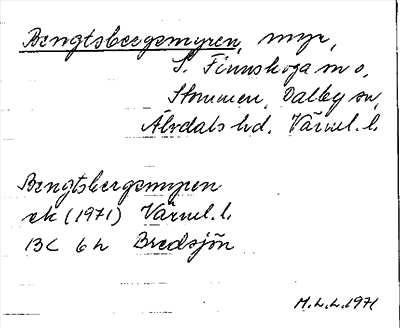 Bengtsbergsmyren, myr,
S. Finnskoga m o,
Stommen, Dalby sn,
Älvdals hd. Värml. l.
Bengtsbergsmyren
ek (1971) Värml. l.
13C 6h Bredsjön
M.L.L. 1971